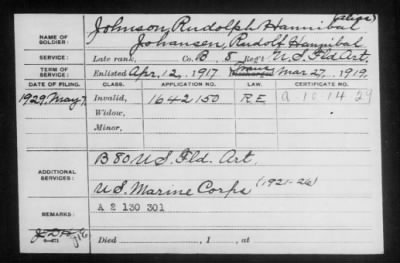 NAME OF SOLDIER: Johnson, Rudolph Hannibal
(alias) Johansen, Rudolf Hannibal
SERVICE: Late rank, Co. B 5 Reg't U.S. Fld Art.
TERM OF SERVICE: Enlisted Apr. 12, 1917 Discharged Mar 27, 1919.
DATE OF FILING. CLASS. APPLICATION NO. LAW. CERTIFICATE NO.
1929 May 7 Invalid, 1642150 RE A 10 14 29
Widow,
Minor,
ADDITIONAL SERVICES: B 80 U S. Fld. Art.
U S. Marine Corps (1921-26)
REMARKS: A 2 130 301
Died , 1 , at